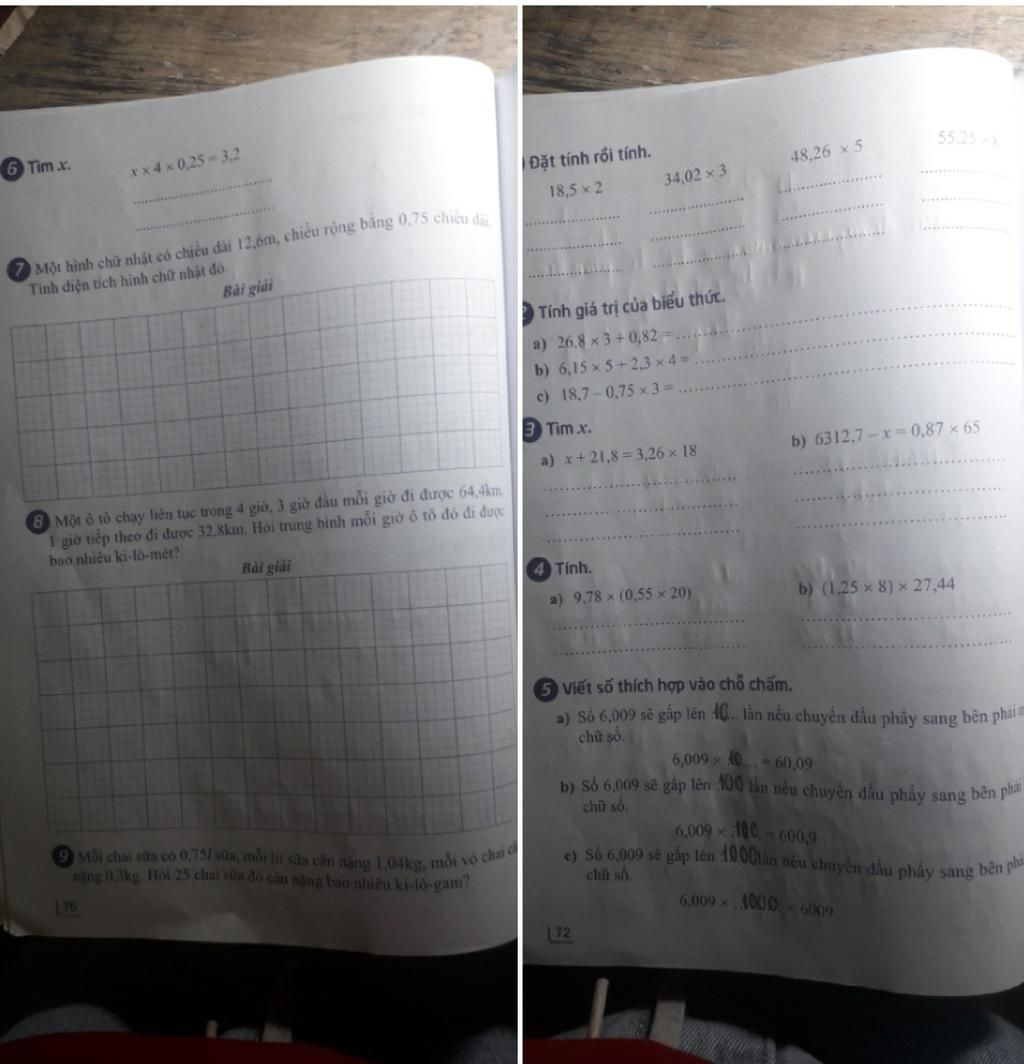 6 Tìm x.
x × 4 × 0,25 = 3,2
7 Một hình chữ nhật có chiều dài 12,6m, chiều rộng bằng 0,75 chiều dài.
Tính diện tích hình chữ nhật đó.
Bài giải
8 Một ô tô chạy liên tục trong 4 giờ, 3 giờ đầu mỗi giờ đi được 64,4km,
1 giờ tiếp theo đi được 32,8km. Hỏi trung bình mỗi giờ ô tô đó đi được
bao nhiêu ki-lô-mét?
Bài giải
9 Mỗi chai sữa có 0,75l sữa, mỗi lít sữa cân nặng 1,04kg, mỗi vỏ chai
nặng 0,3kg. Hỏi 25 chai sữa đó cân nặng bao nhiêu ki-lô-gam?
76
Đặt tính rồi tính.
18,5 × 2 34,02 × 3 48,26 × 5 55,25 ×
Tính giá trị của biểu thức.
a) 26,8 × 3 + 0,82 =
b) 6,15 × 5 + 2,3 × 4 =
c) 18,7 – 0,75 × 3 =
3 Tìm x.
a) x + 21,8 = 3,26 × 18 b) 6312,7 – x = 0,87 × 65
4 Tính.
a) 9,78 × (0,55 × 20) b) (1,25 × 8) × 27,44
5 Viết số thích hợp vào chỗ chấm.
a) Số 6,009 sẽ gấp lên 10... lần nếu chuyển dấu phẩy sang bên phải
chữ số.
6,009 × 10... = 60,09
b) Số 6,009 sẽ gấp lên 100 lần nếu chuyển dấu phẩy sang bên phải
chữ số.
6,009 × .100. = 600,9
c) Số 6,009 sẽ gấp lên 1000 lần nếu chuyển dấu phẩy sang bên
chữ số.
6,009 × .1000. = 6009
72